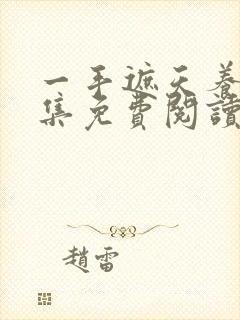 一手遮天養
集免費閱讀
趙雷